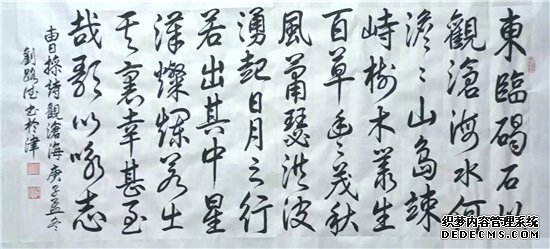 東臨碣石以
觀滄海水何
澹〻山島竦
峙樹木叢生
百草豐〻茂秋
風蕭瑟洪波
湧起日月之行
若出其中星
漢燦爛若出
其裏幸甚至
哉歌以詠志
曹操詩觀滄海庚子孟冬
劉路书於津
织梦内容管理系统
DEDECMS.COM